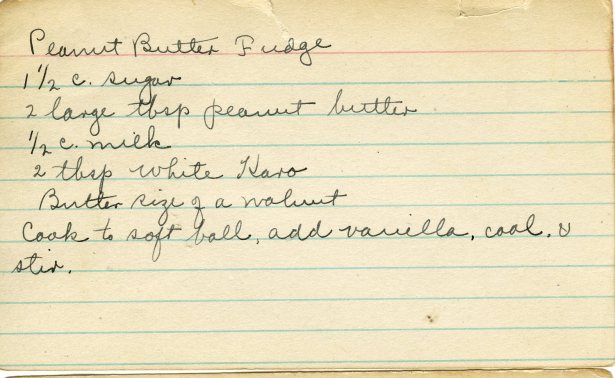 Peanut Butter Fudge
1 1/2 c. sugar
2 large tbsp peanut butter
1/2 c. milk
2 tbsp white Karo
Butter size of a walnut
Cook to soft ball, add vanilla, cool. &
stir.